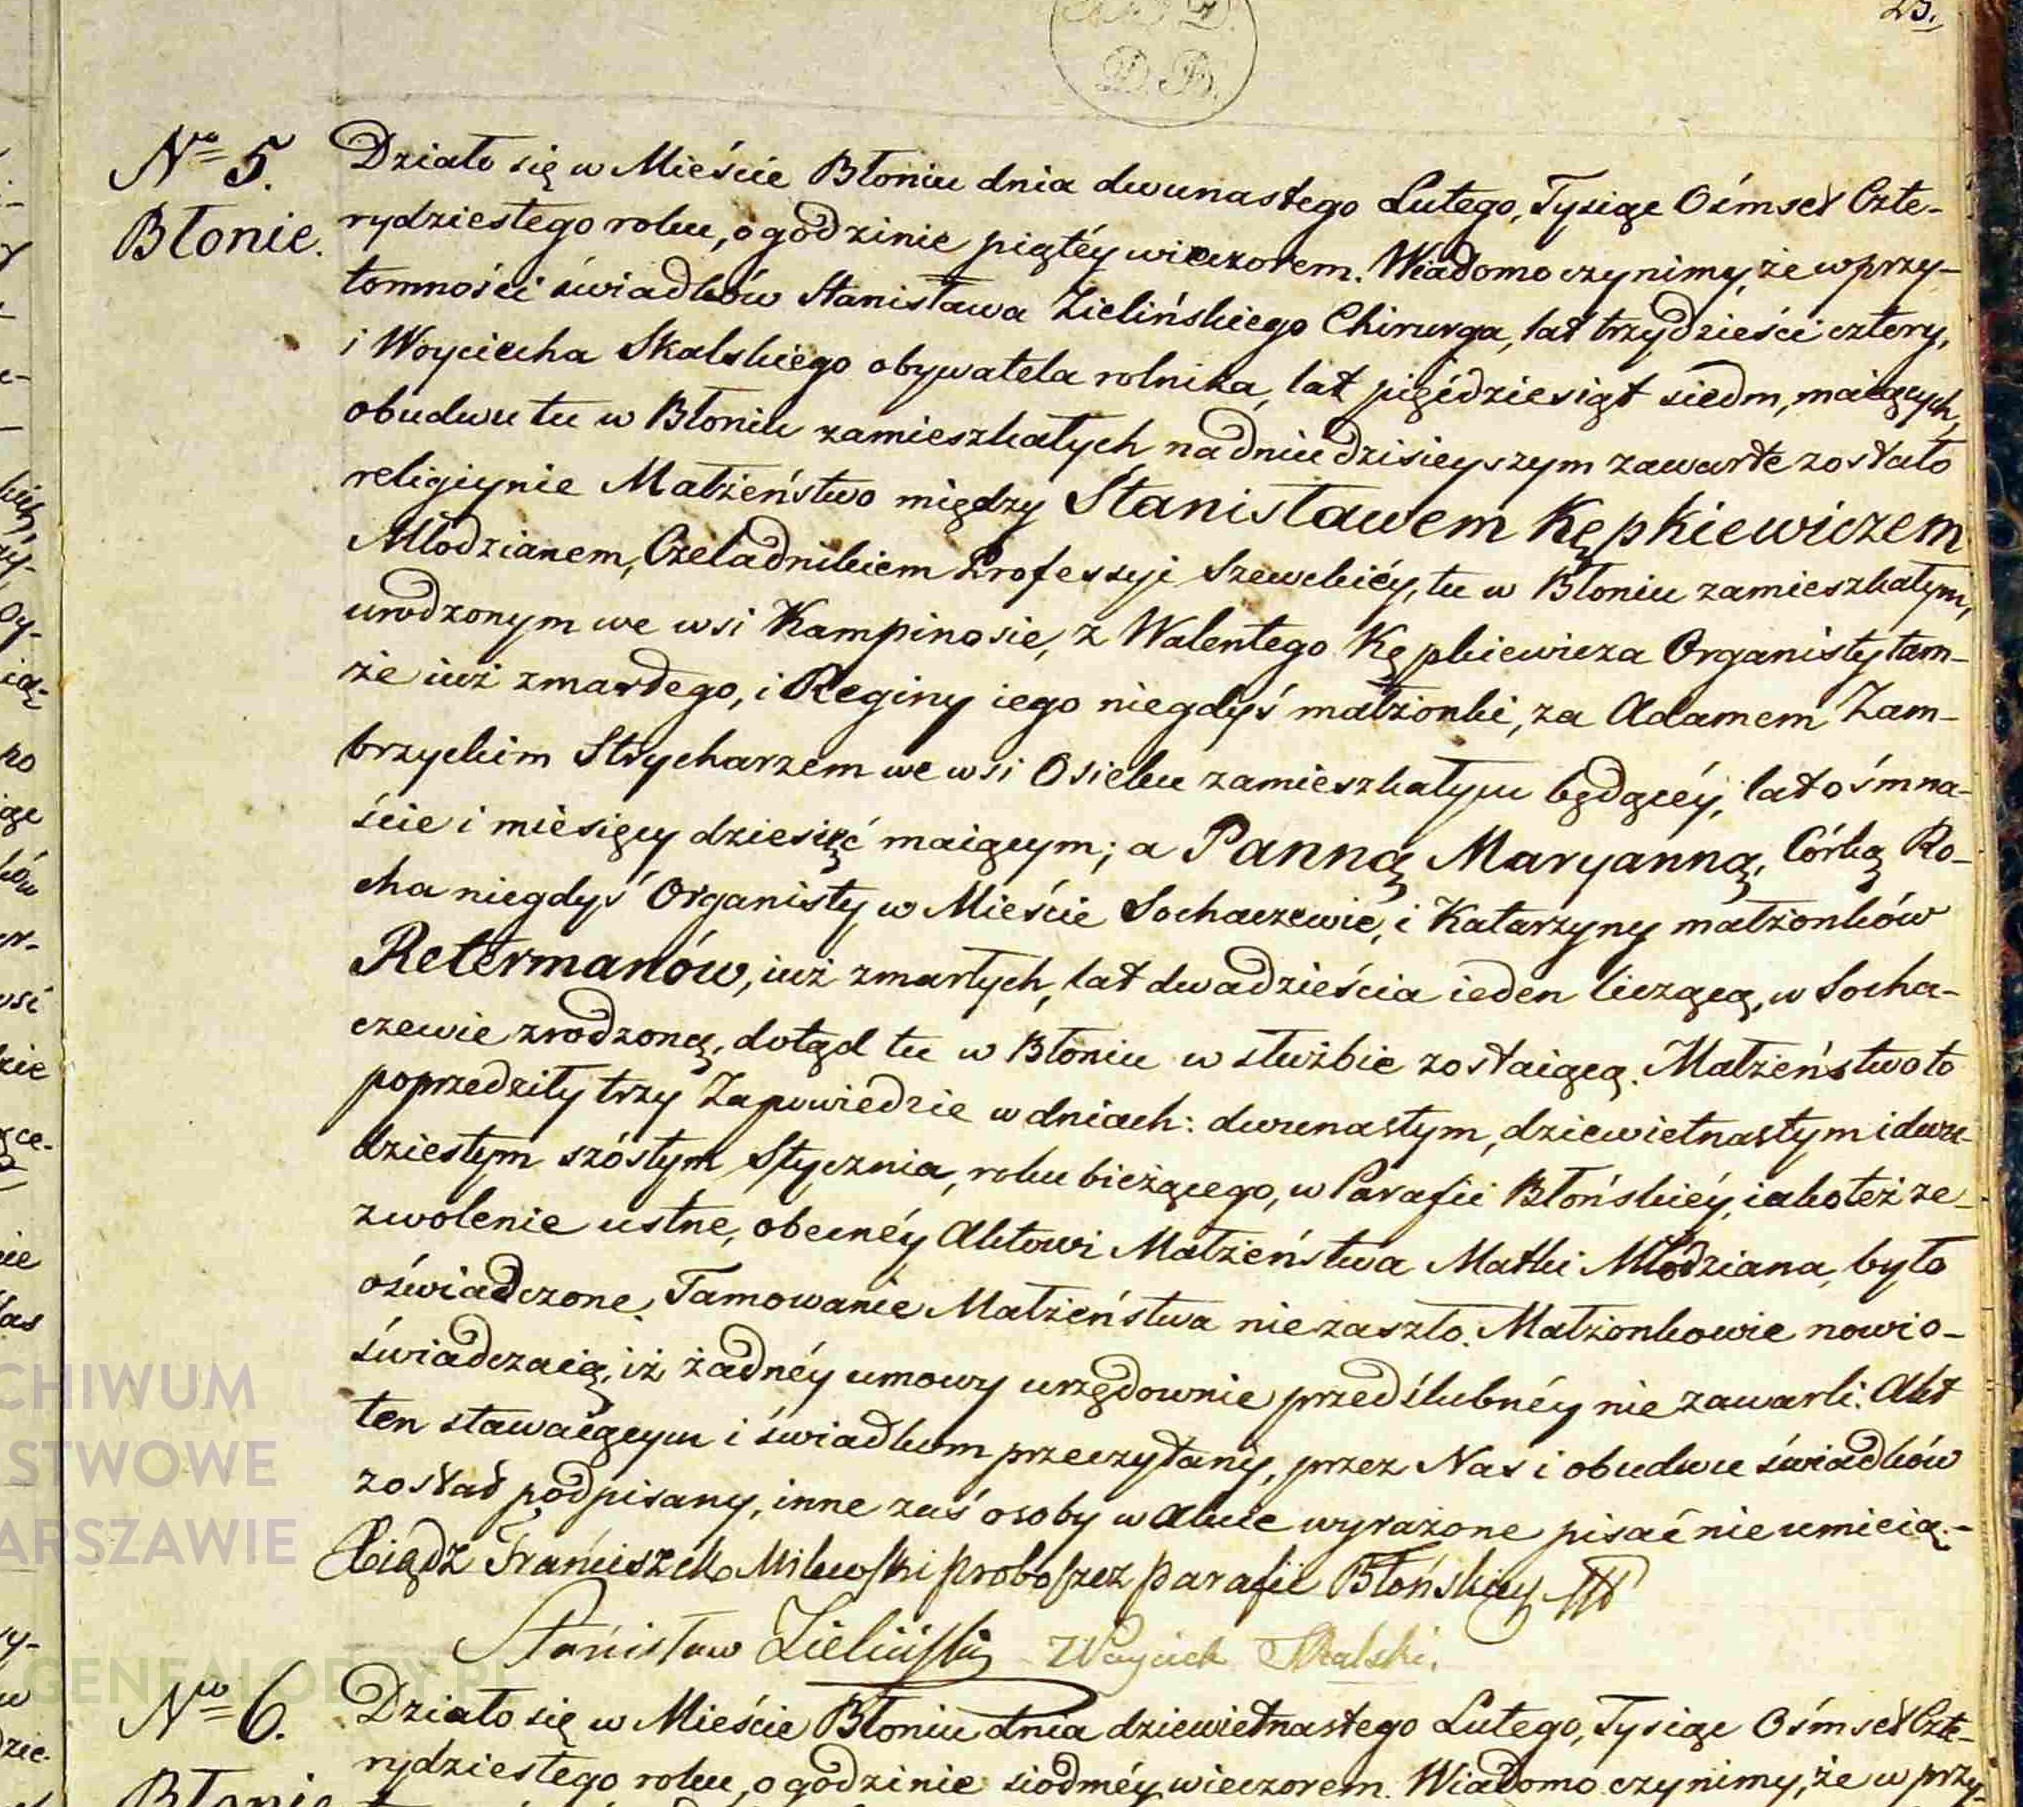 23.
D. B.
No 5.
Błonie.
Działo się w Mieście Błoniu dnia dwunastego Lutego, Tysiąc Ośmset Czte-
rydziestego roku, o godzinie piątéy wieczorem. Wiadomo czynimy, że w przy-
tomności świadków Stanisława Zielińskiego Chirurga, lat trzydzieści cztery,
i Woyciecha Skalskiego obywatela rolnika, lat pięćdziesiąt siedm, maiących,
obudwu tu w Błoniu zamieszkałych na dniu dzisieyszym zawarte zostało
religiynie Małżeństwo między Stanisławem Kępkiewiczem
Młodzianem, Czeladnikiem Professyi Szewckiéy, tu w Błoniu zamieszkałym,
urodzonym we wsi Kampinosie, z Walentego Kępkiewicza Organisty tam-
że iuż zmarłego, i Reginy iego niegdyś małżonki, za Adamem Zam-
brzyckim Strycharzem we wsi Osieku zamieszkałym będącéy, lat ośmna-
ście i miesięcy dziesięć maiącym; a Panną Maryanną, Córką Ro-
cha niegdyś Organisty w Mieście Sochaczewie, i Katarzyny małżonków
Retermanów, iuż zmarłych, lat dwadzieścia ieden liczącą, w Socha-
czewie zrodzoną, dotąd tu w Błoniu w służbie zostaiącą. Małżeństwo to
poprzedziły trzy Zapowiedzie w dniach: dwunastym, dziewietnastym i dwu-
dziestym szóstym Stycznia, roku bieżącego, w Parafii Błońskiéy, iako też ze-
zwolenie ustne, obecnéy Aktowi Małżeństwa Matki Młodziana, było
oświadczone. Tamowanie Małżeństwa nie zaszło. Małżonkowie nowi o-
świadczaią, iż żadnéy umowy urzędownie przedślubnéy nie zawarli. Akt
ten stawaiącym i świadkom przeczytany, przez Nas i obudwu świadków
został podpisany, inne zaś osoby w Akcie wyrażone pisać nie umieią.-
Xiądz Franciszek Milewski proboszcz parafii Błońskiey
Stanisław Zieliński Woyciech Skalski.
No 6.
Działo się w Mieście Błoniu dnia dziewietnastego Lutego, Tysiąc Ośmset Czte-
Błonie
rydziestego roku, o godzinie siódméy wieczorem. Wiadomo czynimy, że w przy-
CHIWUM
STWOWE
ARSZAWIE
GENEALODZY.PL